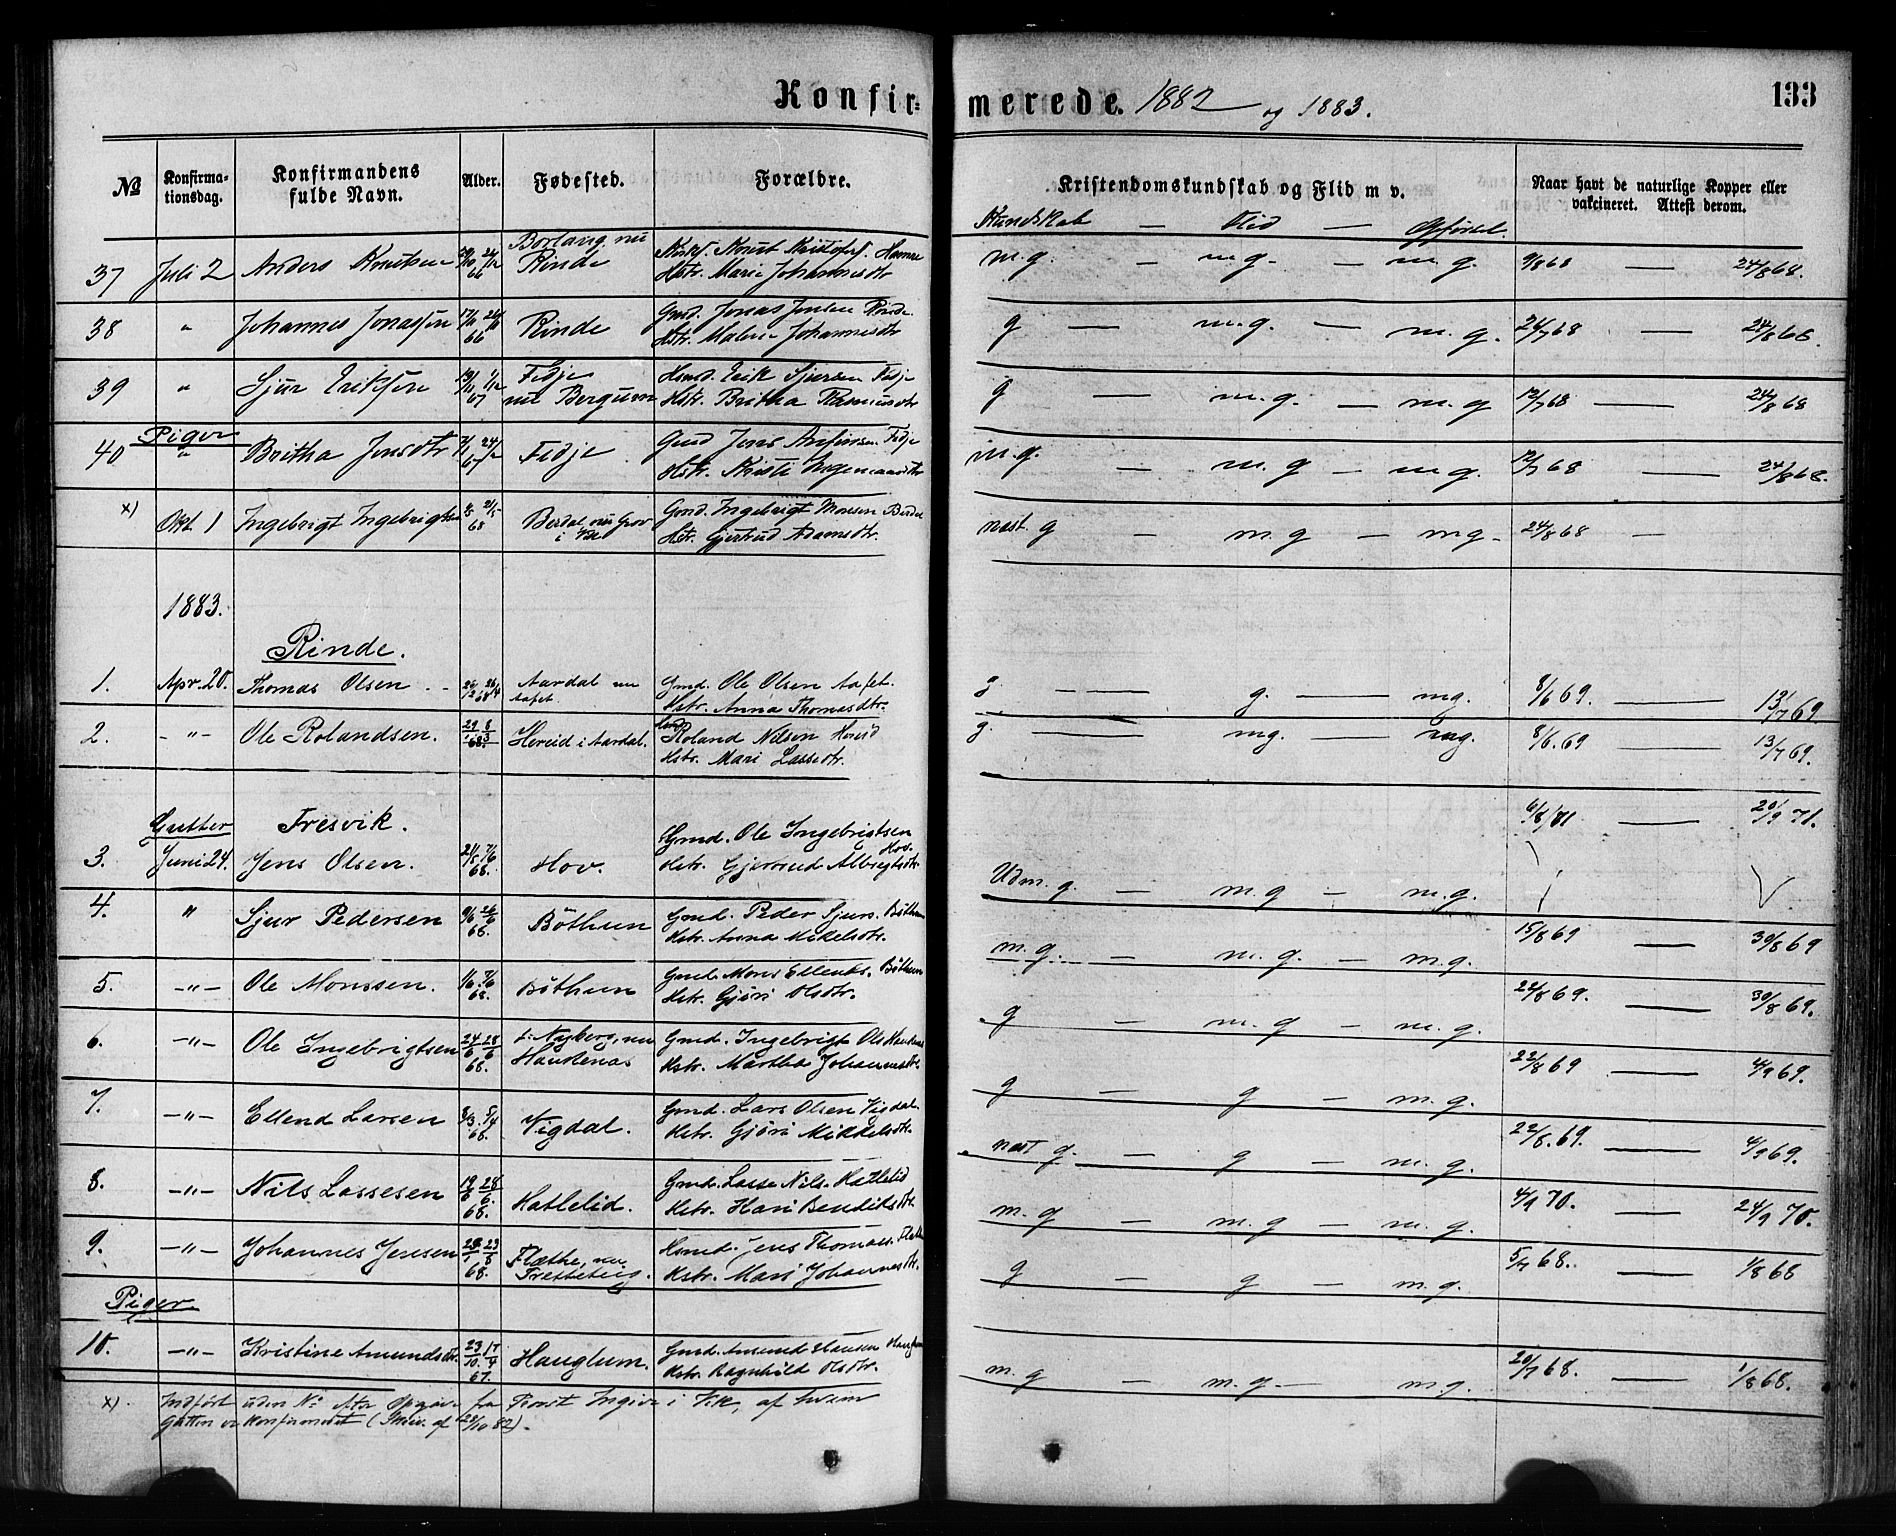 Konfirmerede. 1882 og 1883. 133
№ Konfirmationsdag. Konfirmandens fulde Navn. Alder. Fødested. Forældre. Kristendomskundskab og Flid m v. Naar havt de naturlige Kopper eller vakcineret. Attest derom.
Kundskab — Flid — Opførsel.
37 Juli 2 Anders Knutsen 66 nu Rinde
Hstr. Marie Johannesdtr
m.g. — m.g. — m.g. 9/8 68 — 24/8 68.
38 " Johannes Jonassen 66 Rinde Gmd. Jonas Rinde
Hstr. Malene Johannesdtr
g — m.g. — m.g. 24/7 68 — 24/8 68.
39 " Sjur Eriksen 67 Fedje nu Bergum Hsmd. Erik Sjursen Fedje
Hstr. Britha Rasmusdtr
g — m.g. — m.g 12/7 68 — 24/8 68
Piger
40 " Britha Jensdtr 67 Fedje Gmd Jens Anfinsen Fedje
Hstr. Kristi Ingemansdtr
m.g. — m.g — m.g. 12/7 68 — 24/8 68.
x) Okt 1 Ingebrigt Ingebrigtsen 68 Berdal nu Grov i Vik Gmd. Ingebrigt Monsen Berdal
Hstr. Gjertrud Adamsdtr.
næst. g — m.g — mg. 24/8 68 —
1883.
Rinde.
1. Apr. 20. Thomas Olsen 68 Aardal nu Aafet. Gmd. Ole Olsen Aafet.
Hstr. Anna Thomasdtr.
g. — g. — mg. 8/6 69. — 13/7 69
2. -"- Ole Rolandsen. 29/1 8/3 68. Hereid i Aardal. Roland Nilsen Hereid
Hstr. Mari Lassedtr.
g. — mg. — mg. 8/6. 69 — 13/7 69.
Gutter Fresvik.
3. Juni 24. Jens Olsen. 68. Hov. Gmd. Ole Ingebrigtsen Hov.
Hstr. Gjertrud Albregtsdtr.
Udm. g. — m.g — m.g. 6/8 71 — 20/9 71.
4. " Sjur Pedersen 9/6 26/6 68. Böthun Gmd. Peder Sjurs. Böthun
Hstr. Anna Mikelsdtr.
m.g. — m.g. — m.g. 15/8 69 — 30/8 69
5. -"- Ole Monssen. 1/6 7/6 68. Böthun Gmd. Mons Ellends. Böthun
Hstr. Gjöri Olsdtr.
g — m.g — m.g. 22/8 69. — 30/8 69.
6. -"- Ole Ingebrigtsen 24/6 28/6 68. Nyberg, nu Haukenæs Gmd. Ingebrigt Ols Haukenæs
Hstr. Martha Johannesdtr.
g — g — m.g. 22/8 69 — 4/9 69.
7. -"- Ellend Larsen 8/3. 5/4 68. Vigdal. Gmd. Lars Olsen Vigdal.
Hstr. Gjöri Mikkelsdtr.
næst g. — g — m.g. 22/8. 69. — 4/9 69.
8. -"- Nils Lassesen 19/6 28/6. 68. Hatlelid. Gmd. Lasse Nils. Hatlelid
Hstr. Kari Bendiksdtr
m.g — m.g — m.g. 4/9 70. — 24/9 70.
9. -"- Johannes Jensen 68. Flæthe, nu Hsmd. Jens Thomass. Flæthe
Hstr. Mari Johannesdtr.
g — g — m.g. 5/7 68. — 1/8 68
Piger.
10. -"- Kristine Amundsdtr. 23/10. 17/4 67. Hauglum. Gmd. Amund Hansen Hauglum
Hstr. Ragnhild Olsdtr.
m.g — m.g. — m.g. 20/7 68. — 1/8 68.
x) Indført uden No. efter Opgave fra Provst i Vik, af hvem
Gutten er konfirmeret (Skriv. af 28/10 82).